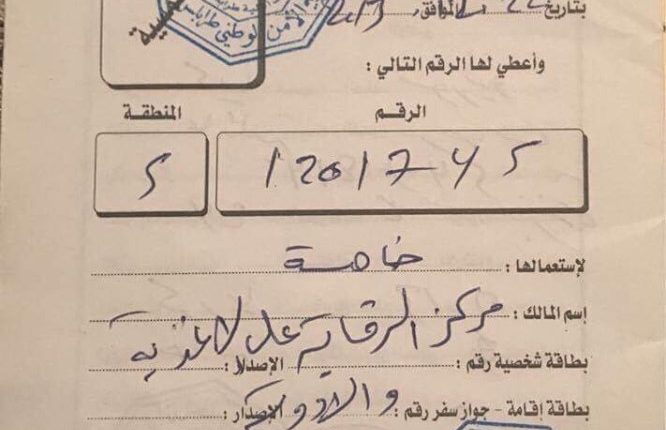 بتاريخ الموافق
الأمن الوطني طرابلس
وأعطي لها الرقم التالي :
الرقم المنطقة
1201745 5
لإستعمالها : خاصة
إسم المالك : مركز الرقابة على لاغذية
بطاقة شخصية رقم : الإصدار :
والادوية
بطاقة إقامة - جواز سفر رقم : الإصدار :